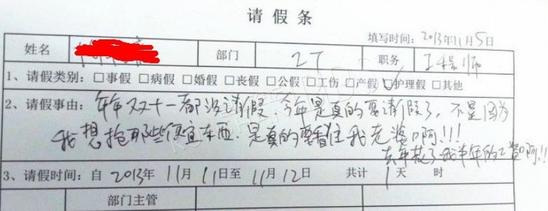 请假条
填写时间：2013年11月5日
姓名 部门 IT 职务 工程师
1、请假类别：□事假 □病假 □婚假 □丧假 □公假 □工伤 □产假 □护理假 □其他
2、请假事由：年年双十一都没请假，今年是真的要请假了，不是因为
我想抢那些便宜东西，是真的要看住我老婆啊!!!
去年花了我半年的工资啊!!
3、请假时间：自2013年11月11日至11月12日 共计1天 时
部门主管